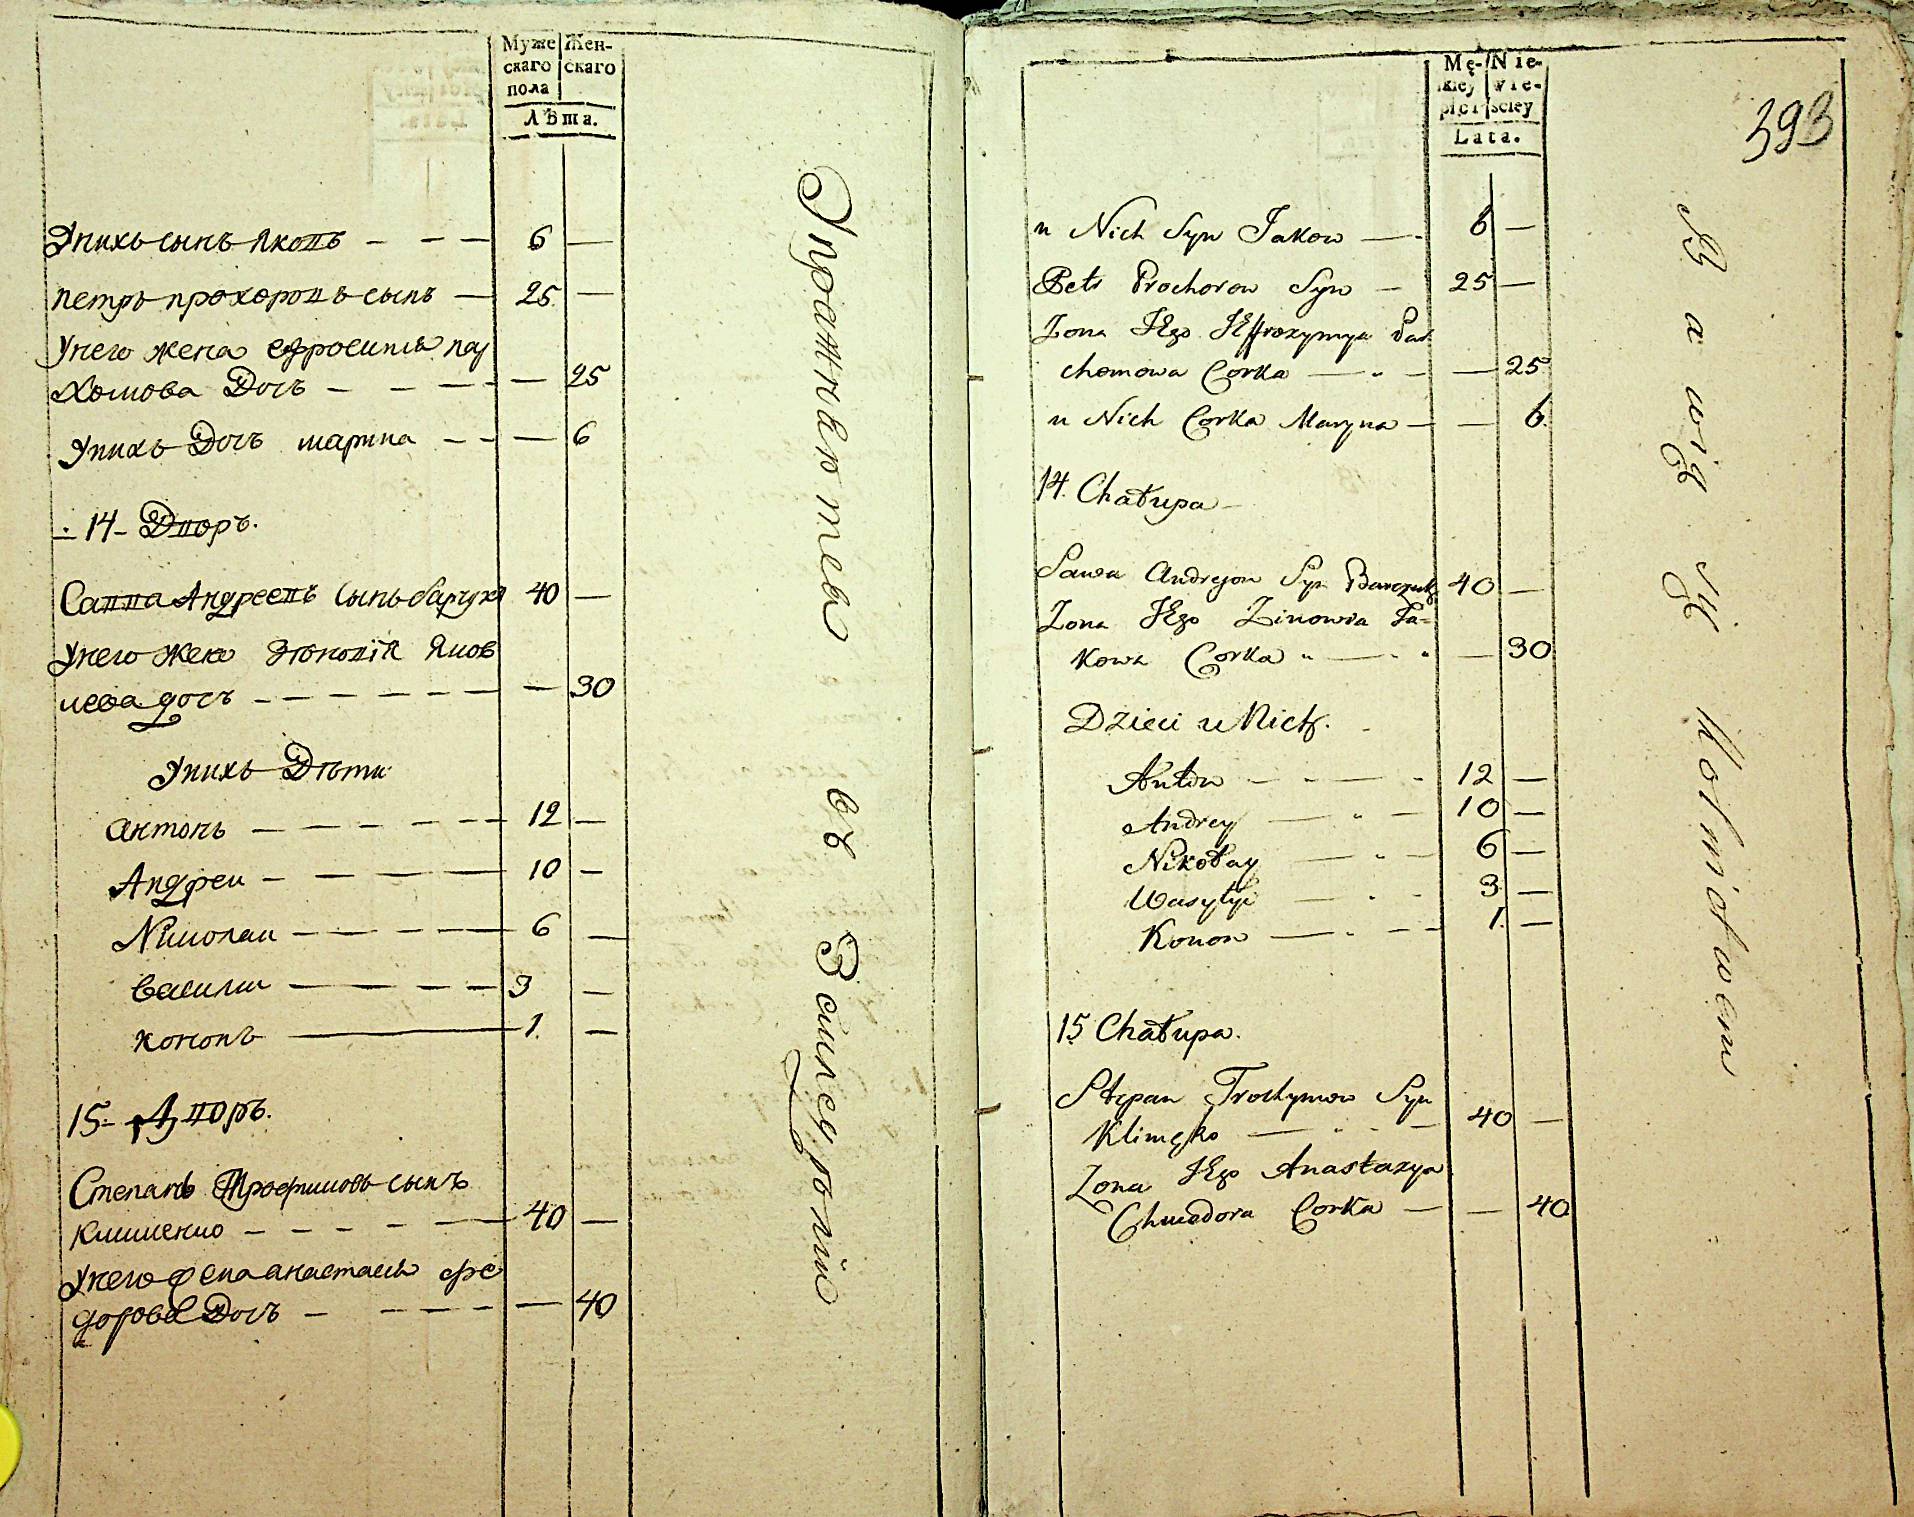 Муже Жен-
скаго скаго
пола
Лѣта.
Унихъ сынъ Яковъ — — — 6 —
петръ прохоровъ сынъ — 25 —
Унего жена ефросинія пар
хомова Дочь — — — — — 25
Унихъ Дочь марина — — — 6
14 - Дворъ.
Савва Андреевъ Сынъ барчукъ 40 —
Унего Жена Зѣновія Яков
лева дочь — — — — — — — 30
Унихъ Дѣти
антонъ — — — — — — 12 —
Андреи — — — — 10 —
Николаи — — — — 6 —
василии — — — — 3 —
кононъ — 1 —
15 - Дворъ.
Степанъ Трофимовъ сынъ
клименко — — — — — 40 —
Унего жена анастасія фе
дорова Дочь — — — — — — 40
Упражняются
въ
Земледѣлій
Mę- Nie-
skiey wie-
płci sciey
Lata.
393
u Nich Syn Jakow — 6 —
Petr Prochorow Syn — 25 —
Zona JEgo JEffrozynya Par
chomowa Corka — „ — — 25
u Nich Corka Maryna — — 6.
14. Chałupa —
Sawa Andrejow Syn Barczuk 40 —
Zona JEgo Zinowia Ja=
kowa Corka „ — „ — 30
Dzieci u Nich.
Anton — — — — 12 —
Andrey — „ — 10 —
Nikołay — „ — 6 —
Wasyłyi — „ — 3 —
Konon — „ — — 1. —
15 Chałupa.
Stepan Trochymow Syn
Klimęko — „ — — 40 —
Zona JEgo Anastazya
Chwedora Corka — — 40
Bawią
Się
Rolnictwem